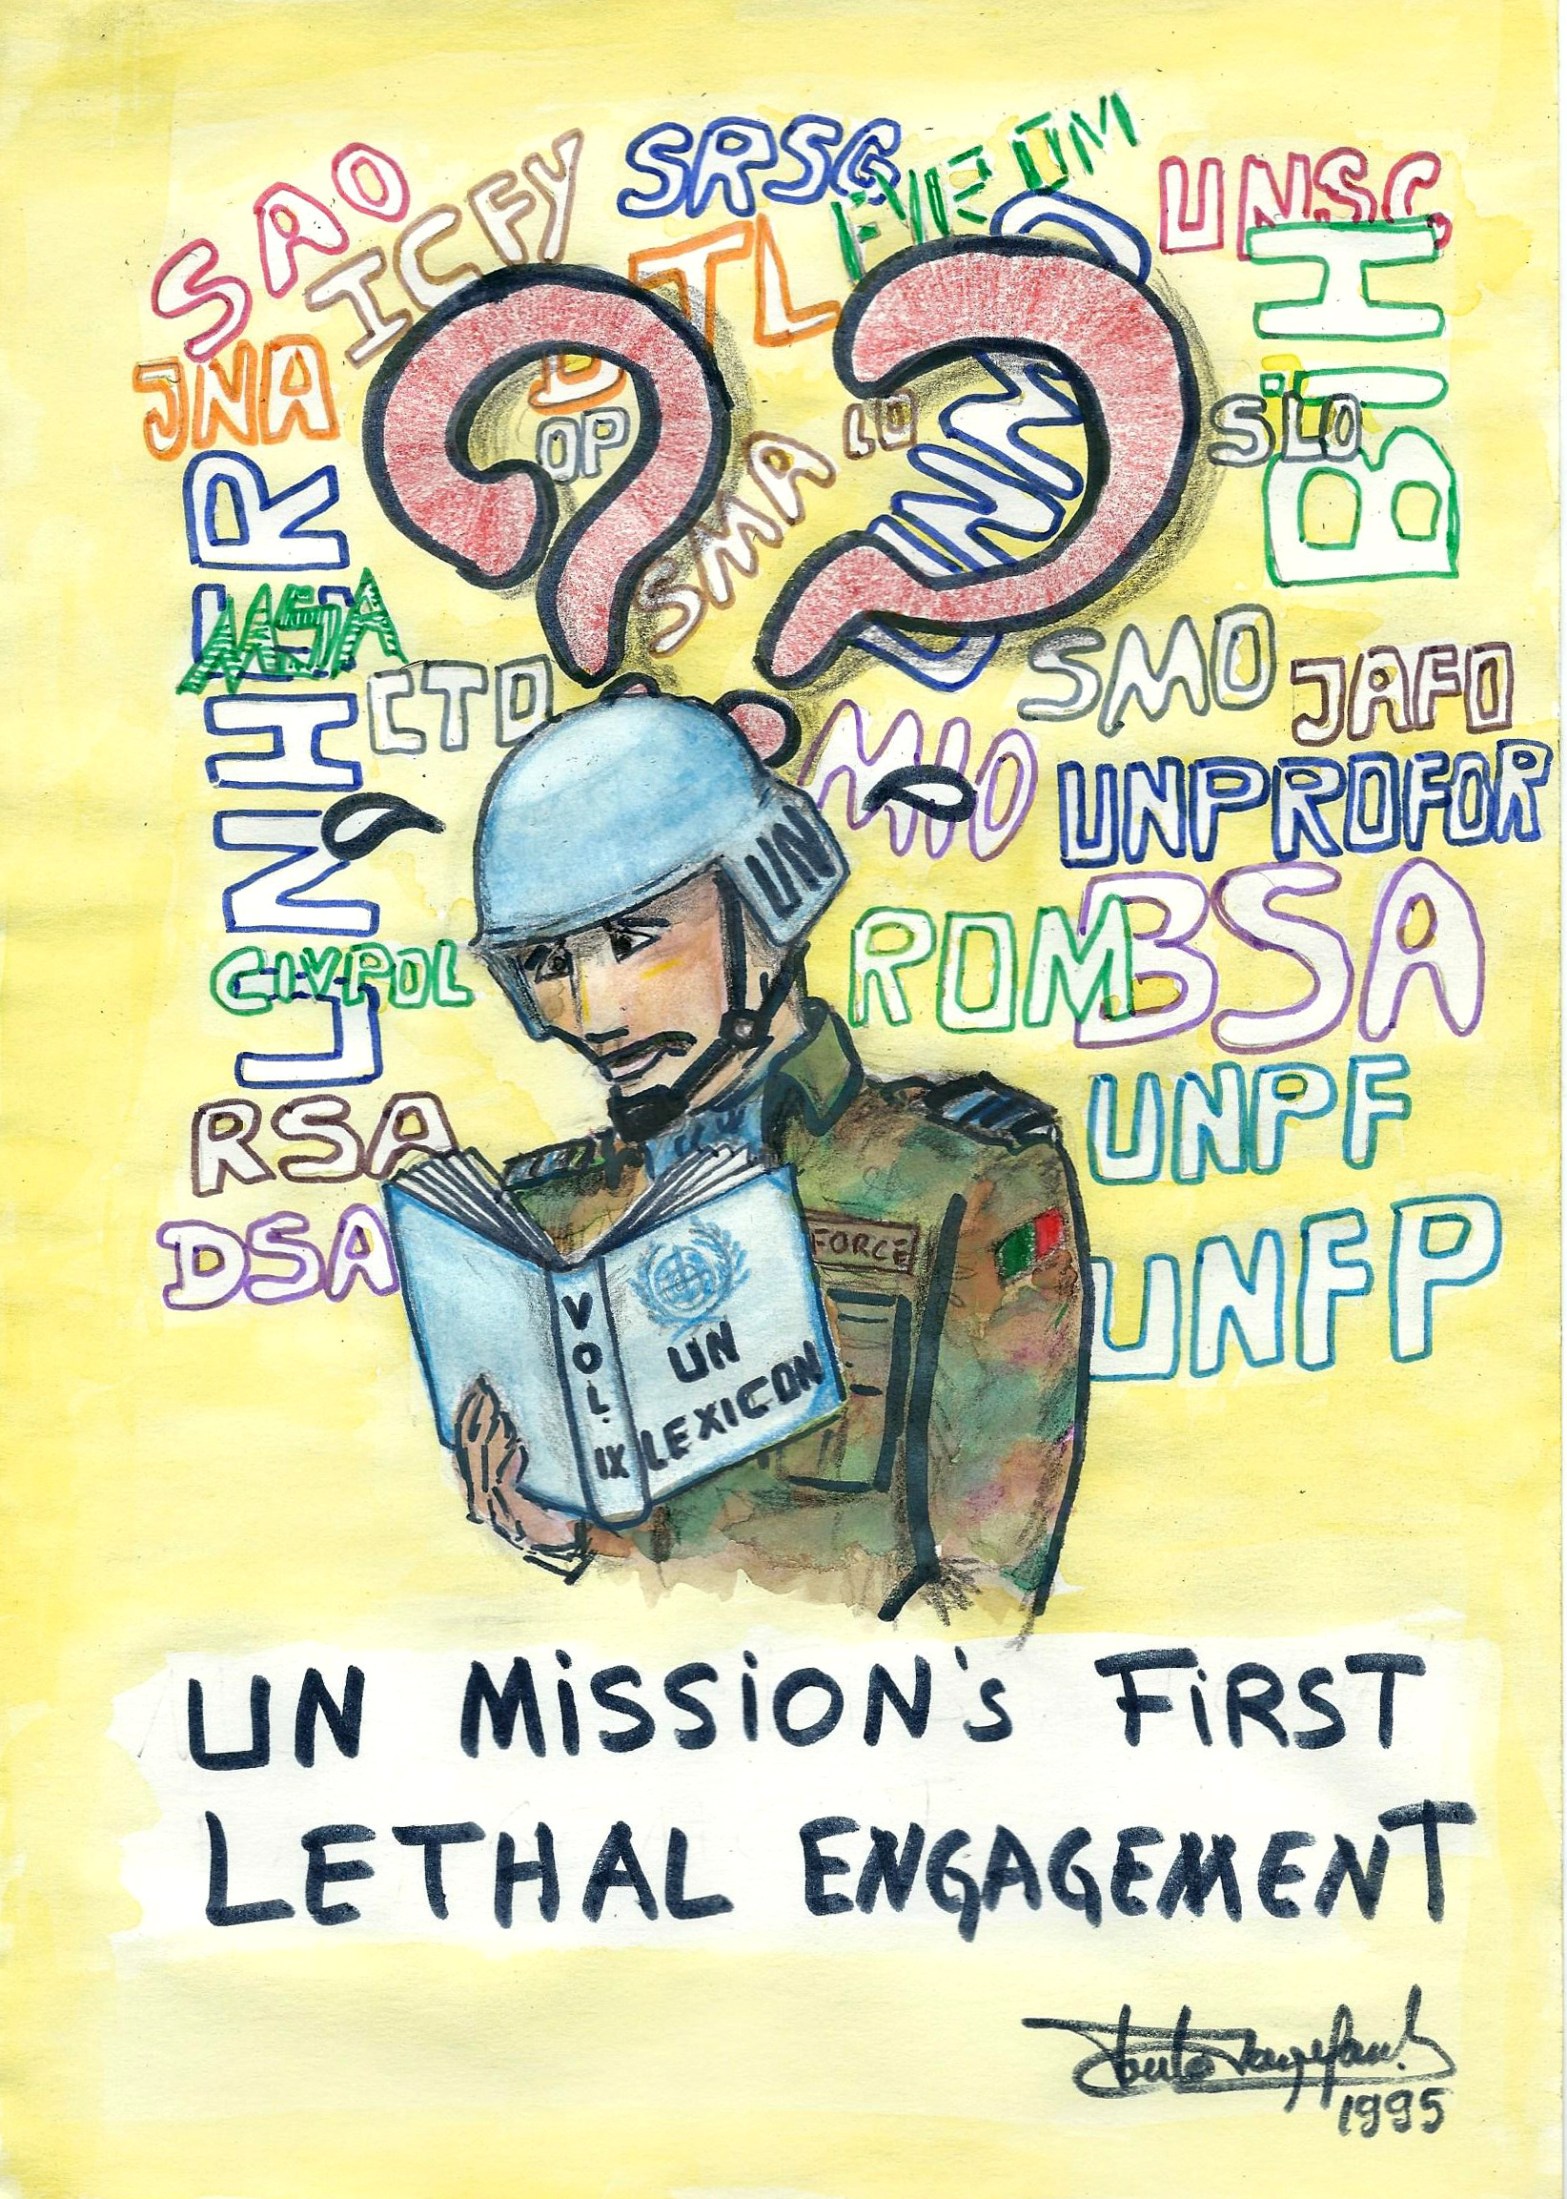 SAO
ICFY
SRSG
FYROM
UNSC
BIH
JNA
TL
OP
SMA
LO
SLO
MSA
CTO
SMO
JAFO
MIO
UNPROFOR
UN
CIVPOL
ROM
BSA
RSA
UNPF
DSA
FORCE
UNFP
VOL. IX
UN
LEXICON
UN MiSSiON's FiRST
LETHAL ENGAGEMENT
1995